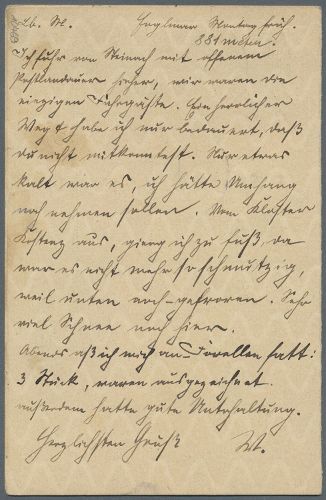 Lb. M. Montag früh.
881 meter.
Ich fuhr von Steinach mit offenem
Postlandauer hieher, wir waren die
einzigen Fahrgäste. Ein herrlicher
Weg & habe ich nur bedauert, daß
du nicht mitkonntest. Nur etwas
kalt war es, ich hätte Umhang
noch nehmen sollen. Vom Kloster
aus, gieng ich zu Fuß, da
war es nicht mehr so schmutzig,
weil unten noch gefroren. Sehr
viel Schnee noch hier.
Abends aß ich mich an Forellen satt:
3 Stück, waren ausgezeichnet.
außerdem hatte gute Unterhaltung.
Herzlichsten Gruß W.